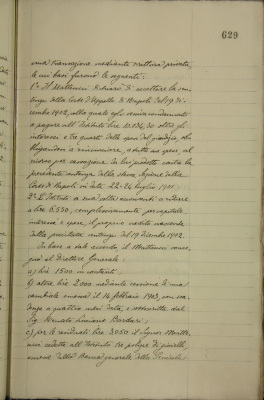 629
una transazione mediante scrittura privata,
le cui basi furono le seguenti:
1° Il Matteucci dichiarò di accettare la sen-
tenza della Corte d'Appello di Napoli del 19 di-
cembre 1902, colla quale egli veniva condannato
a pagare all'Istituto lire oltre gli
interessi e tre quarti delle spese del giudizio,
obbligandosi a rinunciare, a tutte sue spese, al
ricorso per cassazione da lui prodotto contro la
precedente sentenza della stessa Sezione della
Corte di Napoli in data 22-26 luglio 1901.
2° L'Istituto a sua volta acconsentì a ridurre
a lire 6.550, complessivamente per capitale
interessi e spese, il proprio credito nascente
dalla precitata sentenza del 19 dicembre 1902.
In base a tale accordo il Matteucci conse-
gnò al Direttore Generale:
a) lire 1500 in contanti;
b) altre lire 2.000 mediante cessione di una
cambiale emessa il 14 febbraio 1903, con sca-
denza a quattro mesi data, e sottoscritta dal
Sig. Donato Luciano Barbieri;
c) per le residuali lire 3050 il Signor
cedette all'Istituto tre polizze di
emesse dalla Banca generale della Penisola